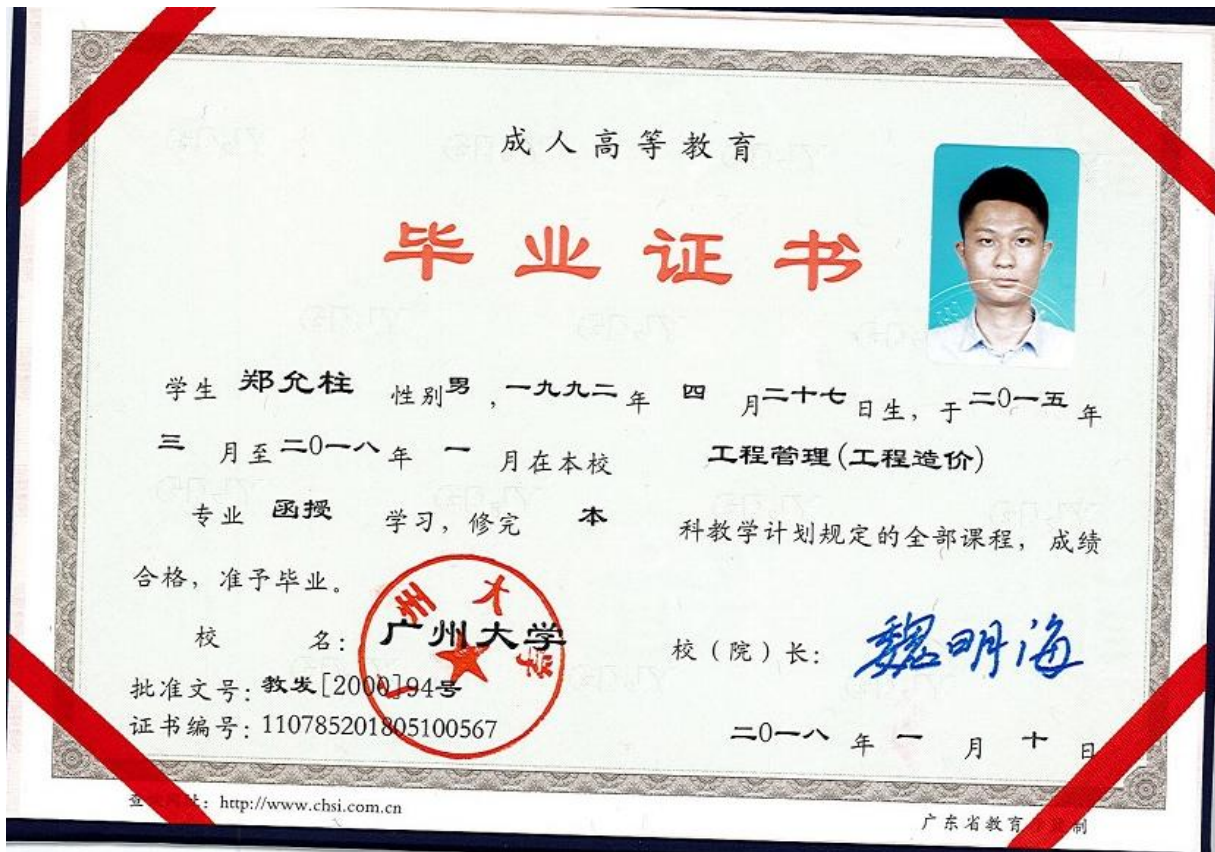 成人高等教育
毕业证书
学生 郑允柱 性别男,一九九二年 四 月二十七日生,于二0一五年
三 月至二0一八年 一 月在本校 工程管理(工程造价)
专业 函授 学习,修完 本 科教学计划规定的全部课程,成绩
合格,准予毕业。
校 名: 广州大学
校(院)长: 魏明海
批准文号: 教发[2000]94号
证书编号: 110785201805100567
二0一八 年 一 月 十 日
广州大学
http://www.chsi.com.cn
广东省教育 制